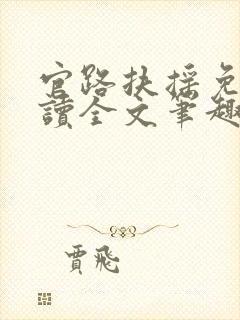 官路扶搖免
讀全文筆趣
賈飛